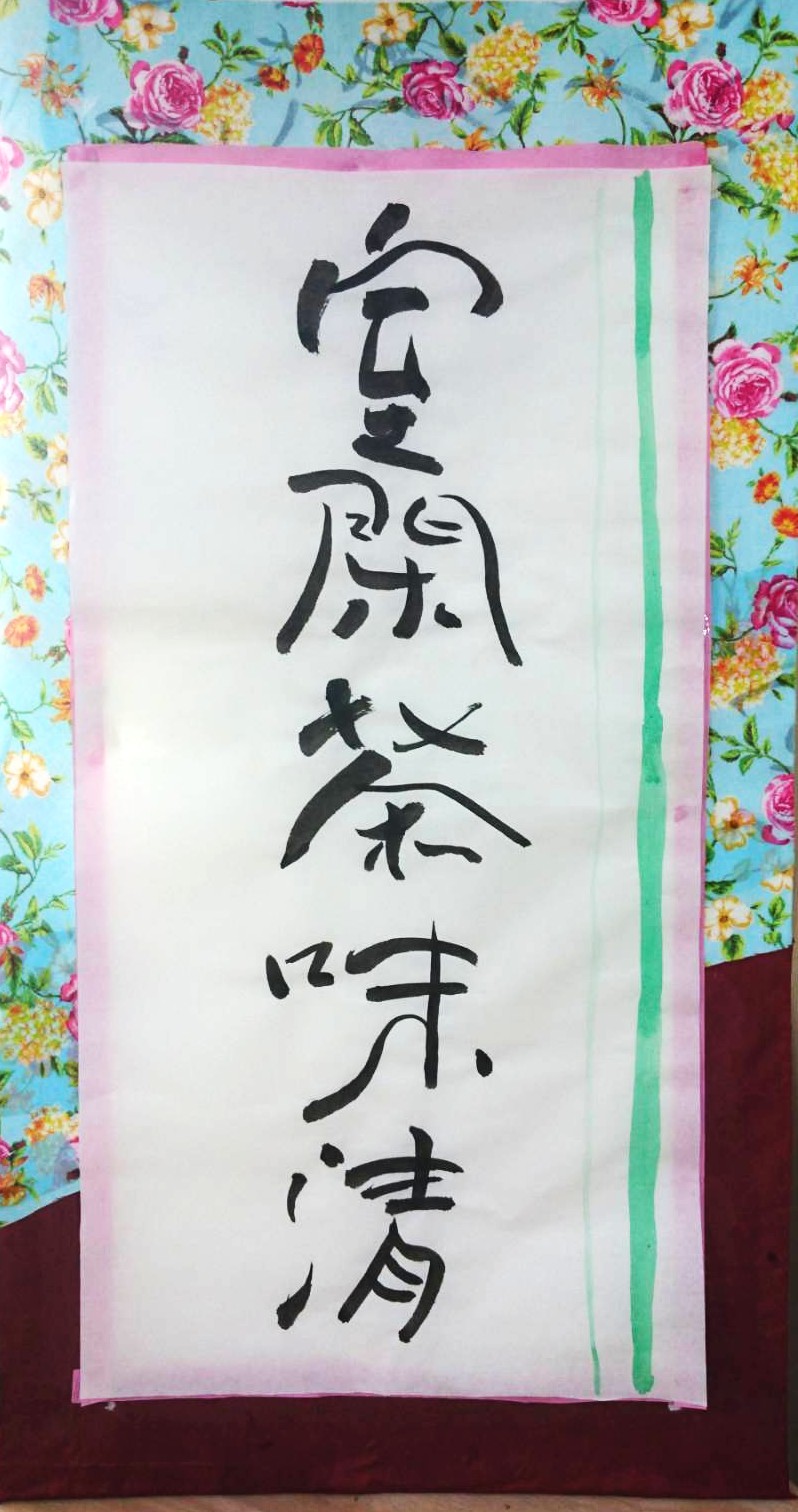 室閑茶味清